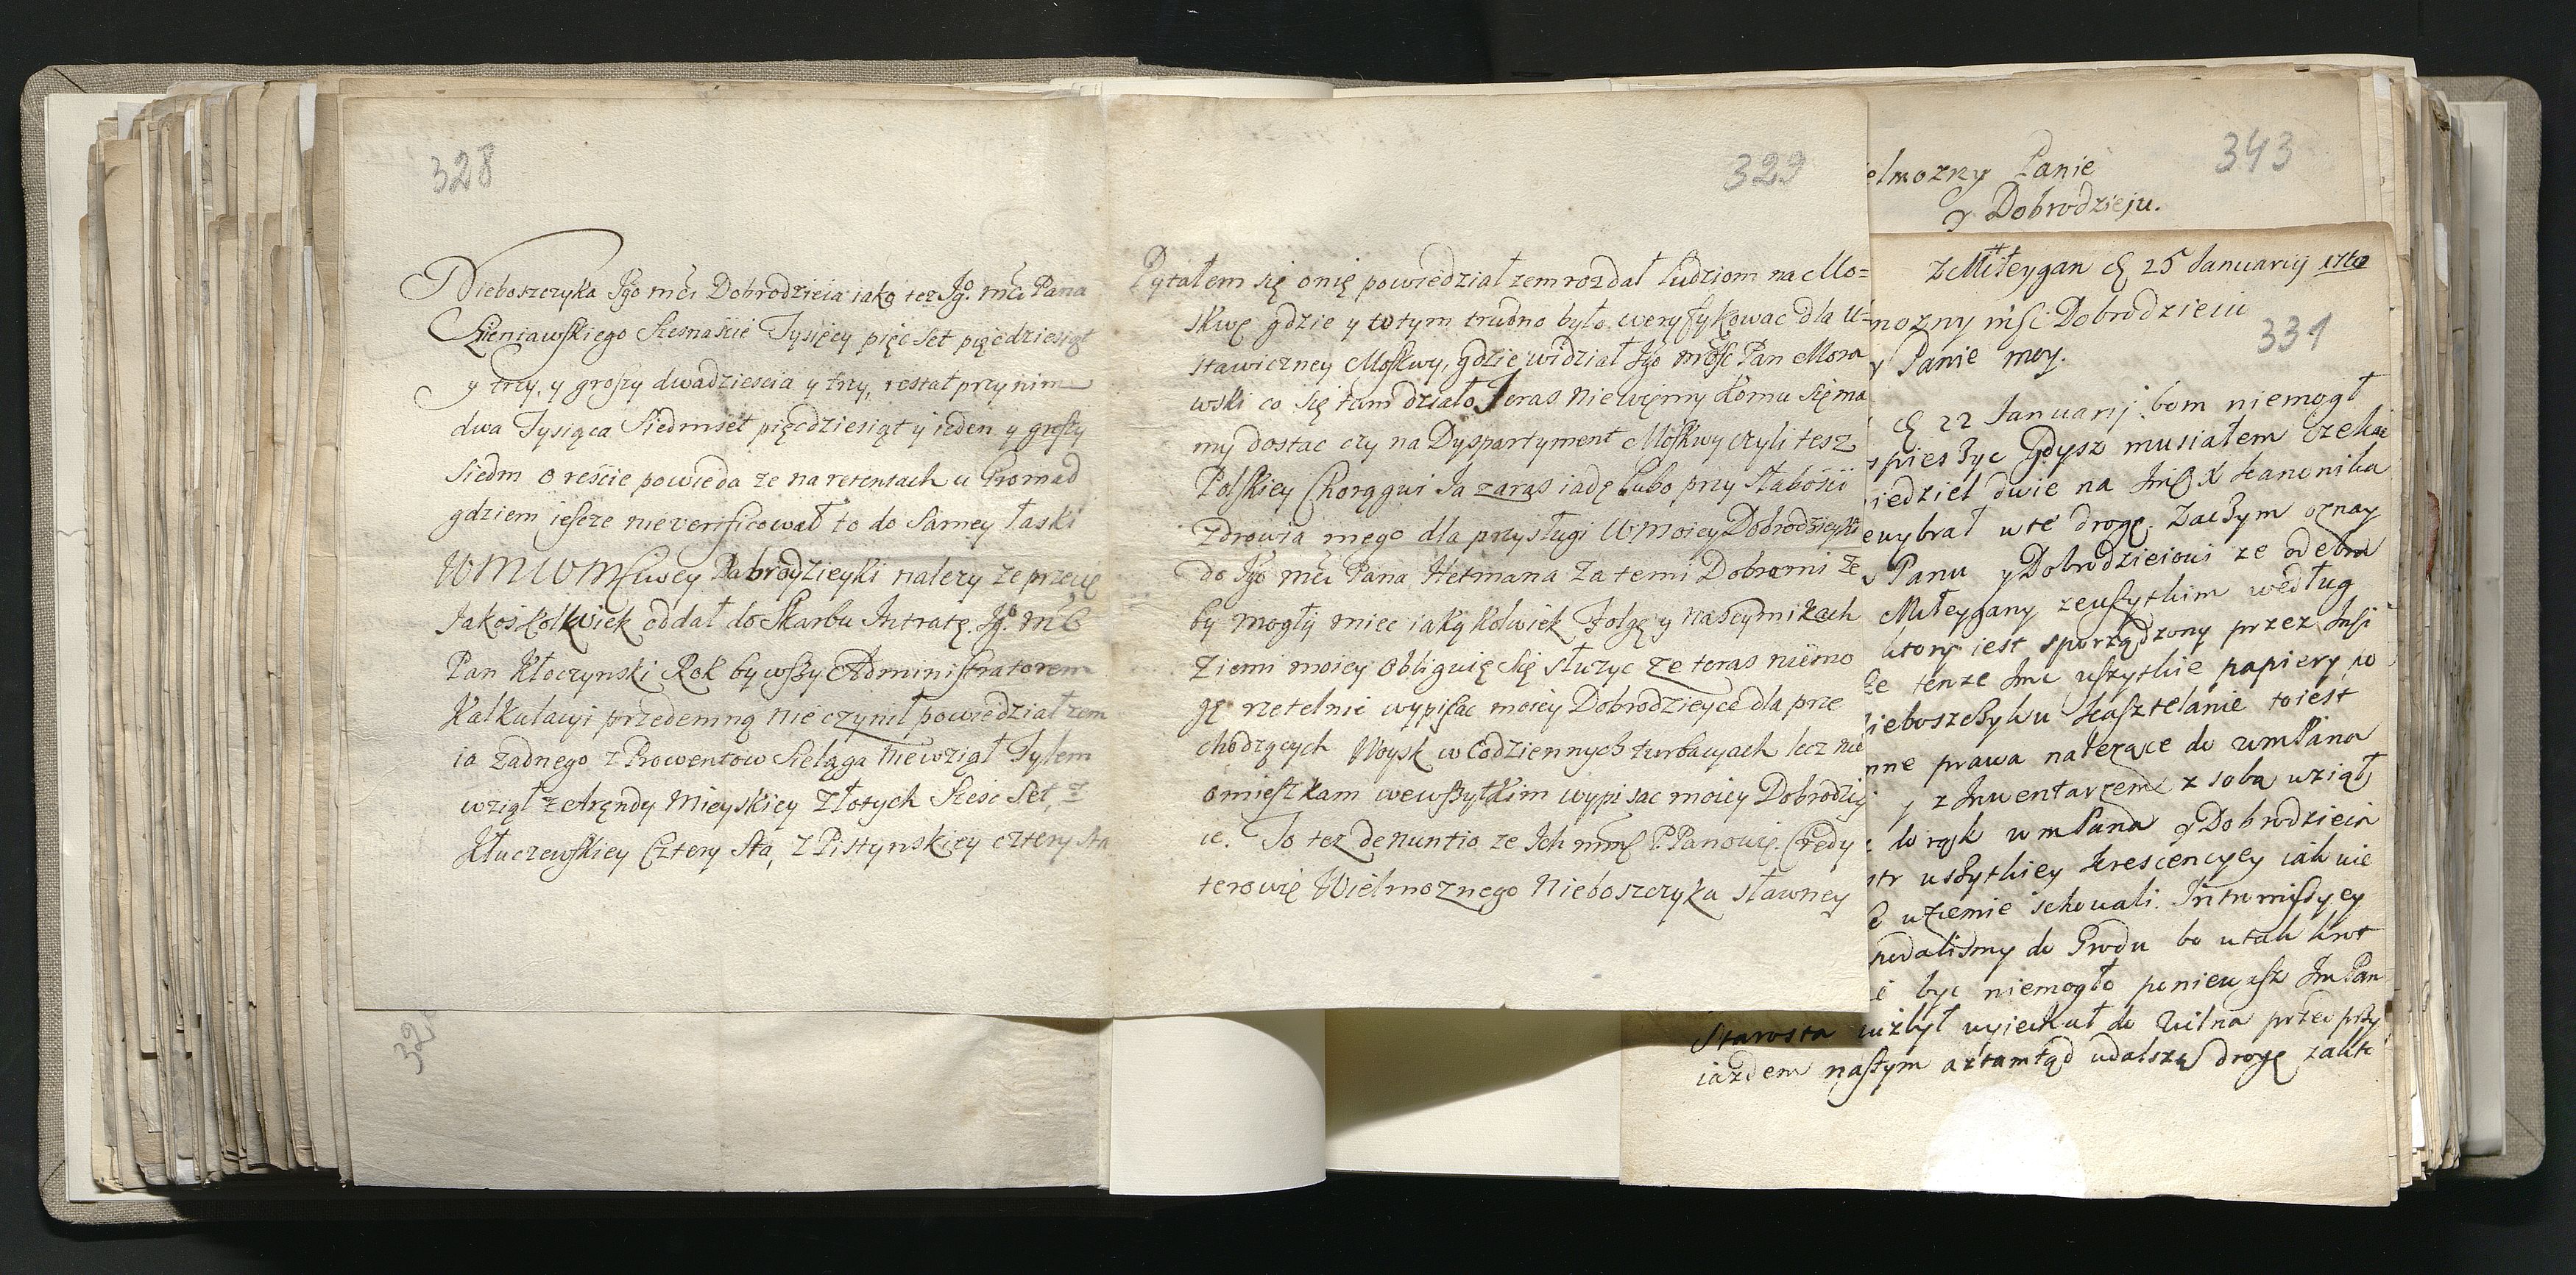 328
Nieboszczyka Jgo mći Dobrodzieia iako tez Jgo. mći Pana
Sieniawskiego Szesnascie Tysięcy pięc set pięcdziesiąt
y trzy, y groszy dwadziescia y trzy, restat przy nim
dwa Tysiąca Siedmset pięcdziesiąt y ieden y groszy
siedm o reście powieda ze na retentach u Gromad
gdziem ieszcze nieverificował to do samey łaski
WMWMściwey Dabrodzieyki nalezy ze przecię
Jakoszkolwiek oddał do Skarbu Intratę. Jgo. mć
Pan Kłoczynski Rok bywszy Administratorem
Kalkulacyi przedemną nie czynił powiedział zem
ia zadnego z Prowentow Szeląga niewziął Tylem
wziął z Arędy Mieyskiey Złotych Sześc Set, z
Kłuczewskiey Cztery Sta, z Pistynskiey cztery sta
329
Pytałem się o nię powiedział zem rozdał ludziom na Mo=
skwę gdzie y w tym trudno było weryfykowac dla U=
stawiczney Moskwy, gdzie widział Jgo mość Pan Mora
wski co się tam działo, Teras nie więmy komu się ma
my dostac czy na Dyspartyment Moskwy czyli tesz
Polskiey Chorągwi Ja zaras iadę lubo przy słabości
zdrowia mego dla przysługi WMoiey Dobrodzieyki
do Jgo mći Pana Hetmana za temi Dobrami ze
by mogły miec iakąkolwiek Folgę y na Seymikach
Ziemi moiey obliguię się słuzyc ze teras niemo
gę rzetelnie wypisac moiey Dobrodzieyce dla prze
chodzących Woysk w codziennych turbacyach lecz nie
omieszkam wewszytkim wypisac moiey Dobrodziey
ce. To tez denuntio ze Ich mmć PPanowie Credy
terowie Wielmoznego Nieboszczyka sławney
343
elmozny Panie
y Dobrodzieju.
z Miłeygan d 25 Januarij
mozny mśc Dobrodzieiu
331
y Panie moy.
d 22 Januarij bom niemogł
spieszyc Gdysz musiałem czekac
iedziel dwie na Jmć X Kanonika
ewybrał w te drogę. Zaczym oznay
Panu y Dobrodzieiowi ze odebra
Miłeygany zewszytkim według
ktory iest sporządzony przez
ze tenze Jmc wszytkie papiery po
ieboszczyku Kasztelanie toiest
nne prawa nalezące do wmPana
y z Inwentarzem z soba wziął
do rąk wmPana y Dobrodzieia
str wszytkiey Krescencyey iak wie
w ziemie schowali. Intromissyey
podalismy do Grodu bo w tak krot
byc niemogło poniewasz JmPan
Starosta wyiechał do Wilna przed przy
iazdem naszym aztamtąd w dalszą drogę